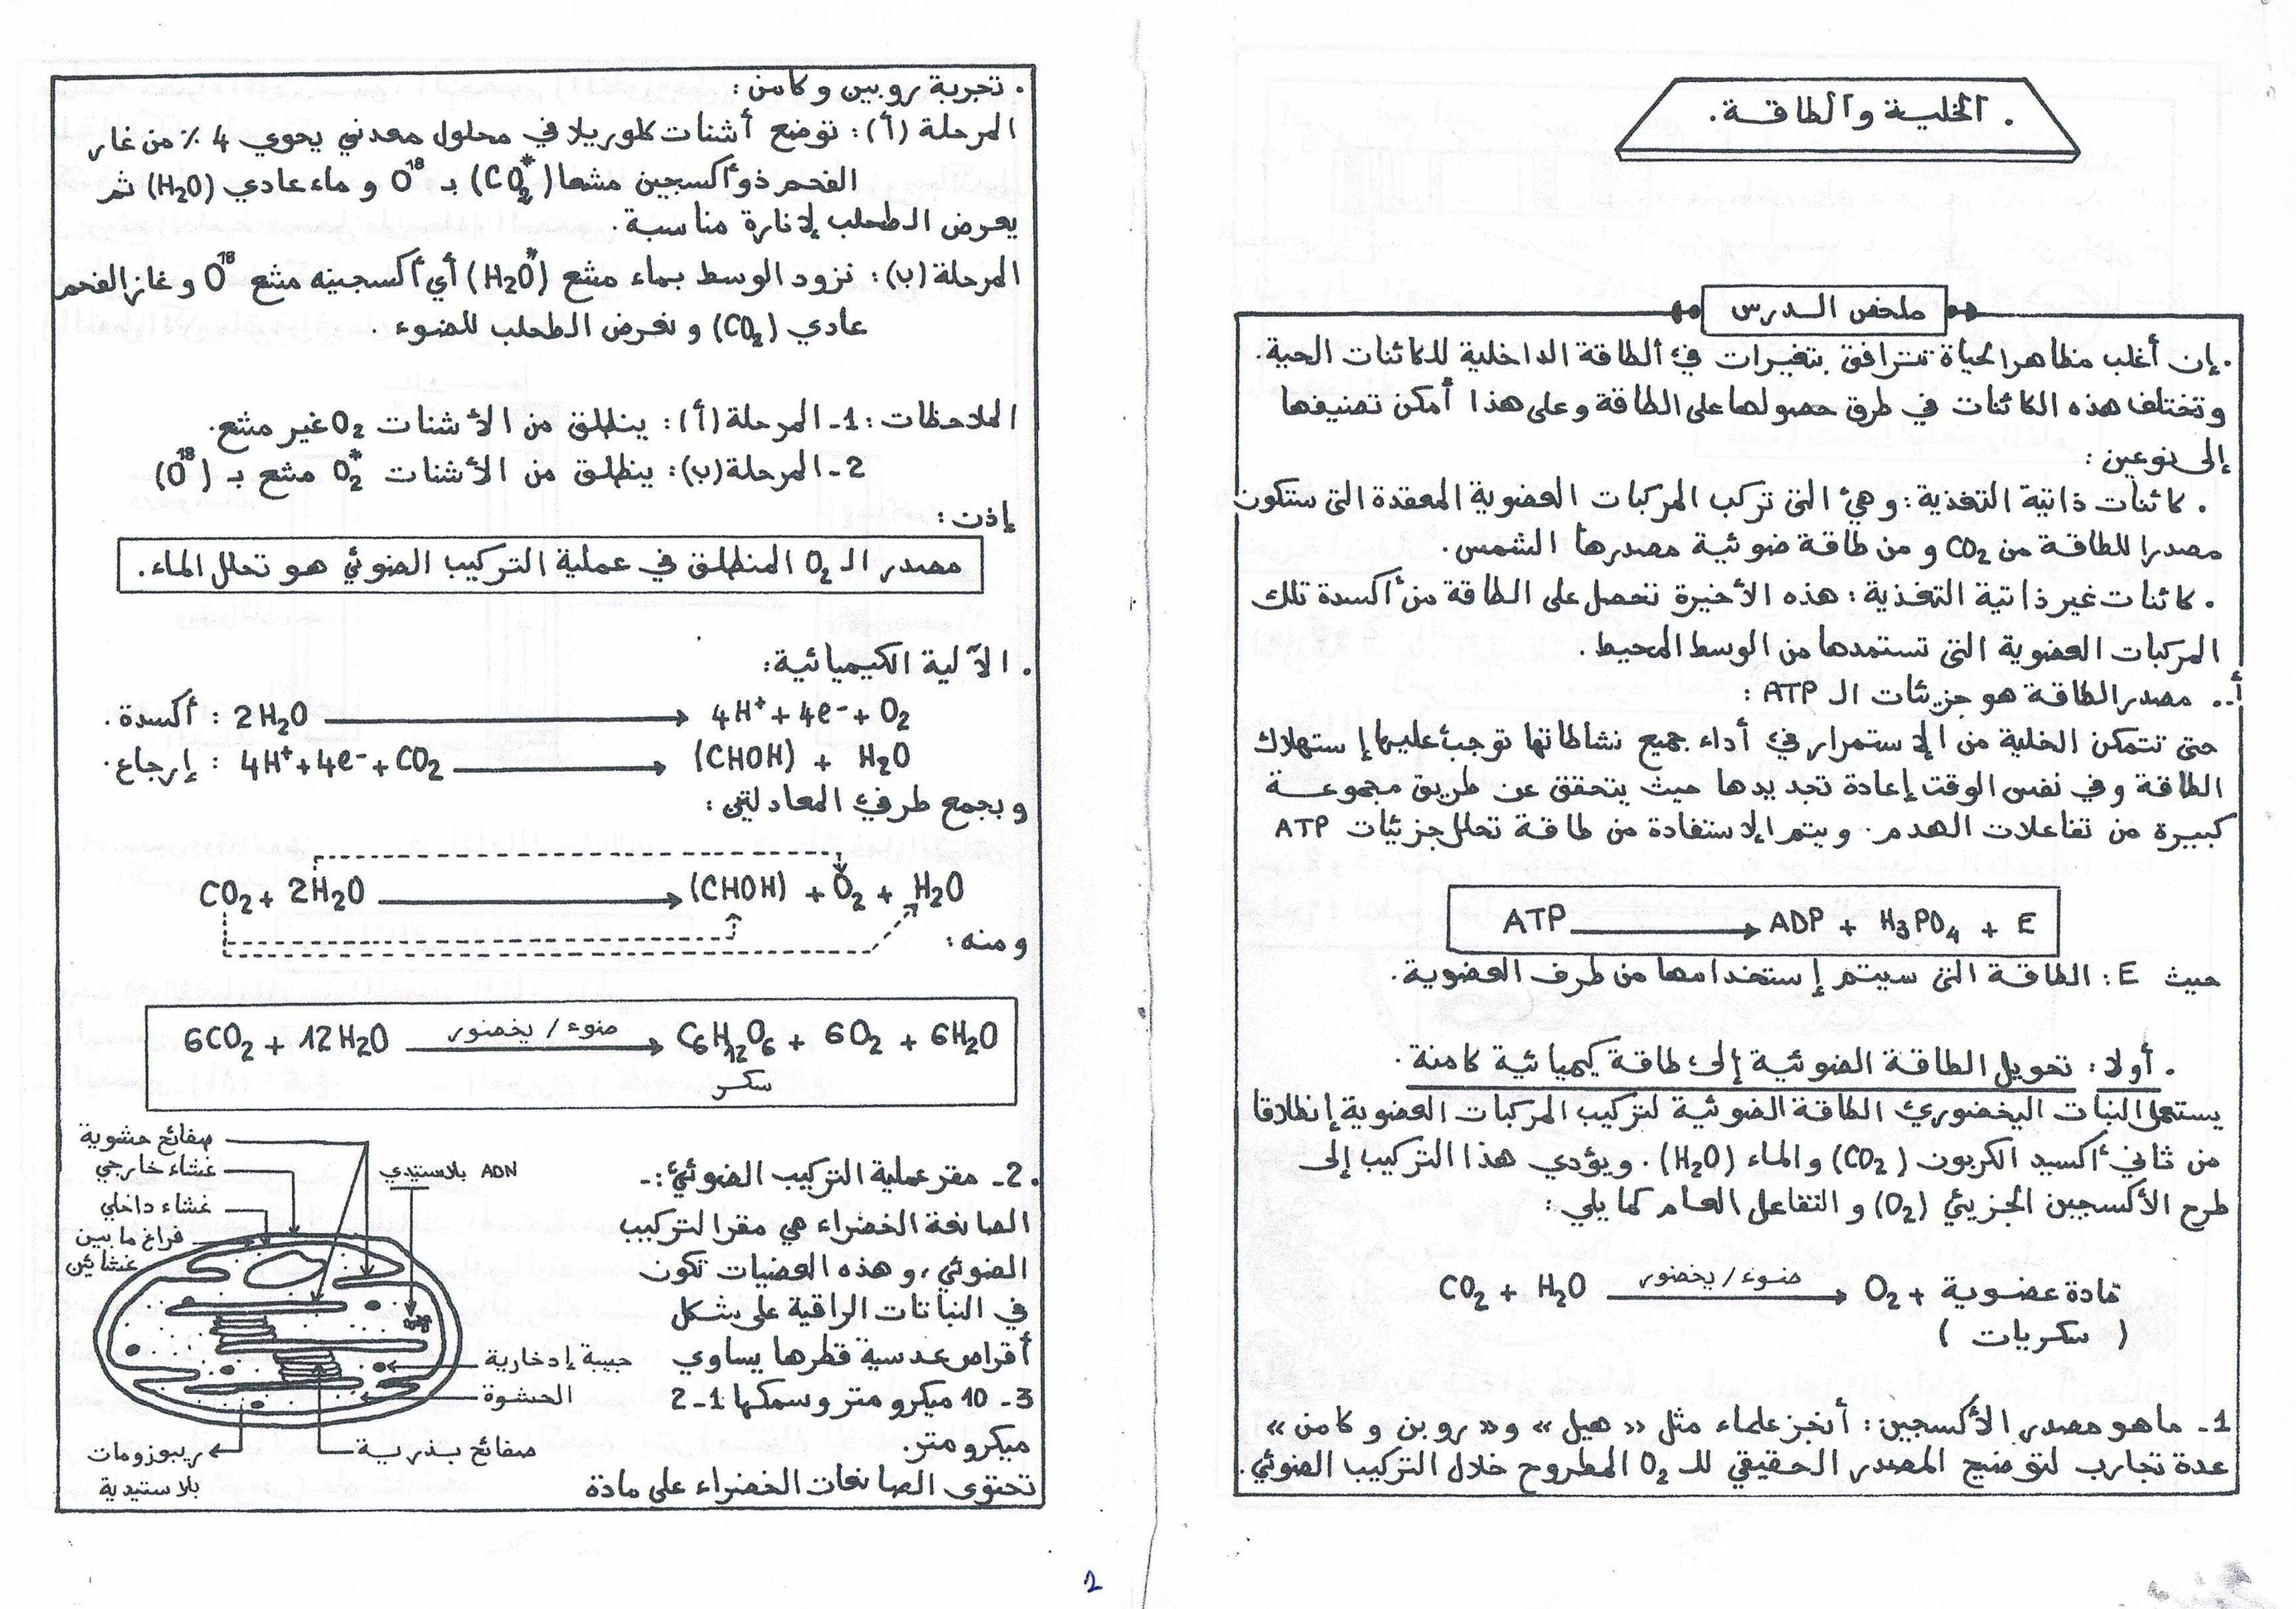 . الخلية والطاقة.
ملخص الدرس
. إن أغلب مظاهر الحياة تترافق بتغيرات في الطاقة الداخلية للكائنات الحية.
وتختلف هذه الكائنات في طرق حصولها على الطاقة وعلى هذا أمكن تصنيفها
إلى نوعين :
. كائنات ذاتية التغذية : وهي التي تركب المركبات العضوية المعقدة التي ستكون
مصدرا للطاقة من CO₂ و من طاقة ضوئية مصدرها الشمس.
. كائنات غير ذاتية التغذية : هذه الأخيرة تحصل على الطاقة من أكسدة تلك
المركبات العضوية التي تستمدها من الوسط المحيط .
أ.. مصدر الطاقة هو جزيئات الـ ATP :
حتى تتمكن الخلية من الإستمرار في أداء جميع نشاطاتها توجب عليها إستهلاك
الطاقة وفي نفس الوقت إعادة تجديدها حيث يتحقق عن طريق مجموعة
كبيرة من تفاعلات الهدم . ويتم الإستفادة من طاقة تحلل جزيئات ATP
ATP → ADP + H₃PO₄ + E
حيث E : الطاقة التي سيتم إستخدامها من طرف العضوية.
. أولا : تحويل الطاقة الضوئية إلى طاقة كيميائية كامنة .
يستعمل النبات اليخضوري الطاقة الضوئية لتركيب المركبات العضوية إنطلاقا
من ثاني أكسيد الكربون (CO₂) والماء (H₂O). ويؤدي هذا التركيب إلى
طرح الأكسجين الجزيئي (O₂) و التفاعل العام كما يلي :
CO₂ + H₂O → ضوء / يخضور O₂ + مادة عضوية
( سكريات )
1- ما هو مصدر الأكسجين : أنجز علماء مثل « هيل » و « روبن و كامن »
عدة تجارب لتوضيح المصدر الحقيقي للـ O₂ المطروح خلال التركيب الضوئي.
. تجربة روبين و كامن :
المرحلة (أ) : توضع أشنات كلوريلا في محلول معدني يحوي 4 ٪ من غاز
الفحم ذو أكسجين مشعا (CO₂*) بـ O¹⁸ و ماء عادي (H₂O) ثم
يعرض الطحلب لإنارة مناسبة .
المرحلة (ب) : نزود الوسط بماء مشع (H₂O*) أي أكسجينه مشع O¹⁸ و غاز الفحم
عادي (CO₂) و نعرض الطحلب للضوء .
الملاحظات : 1- المرحلة (أ) : ينطلق من الأشنات O₂ غير مشع.
2- المرحلة (ب) : ينطلق من الأشنات O₂* مشع بـ (O¹⁸)
إذن :
مصدر الـ O₂ المنطلق في عملية التركيب الضوئي هو تحلل الماء.
. الآلية الكيميائية :
أكسدة : 2H₂O → 4H⁺ + 4e⁻ + O₂
إرجاع : 4H⁺ + 4e⁻ + CO₂ → (CHOH) + H₂O
و بجمع طرفي المعادلتين :
CO₂ + 2H₂O → (CHOH) + O₂ + H₂O
و منه :
6CO₂ + 12H₂O → ضوء / يخضور C₆H₁₂O₆ + 6O₂ + 6H₂O
سكر
. 2- مقر عملية التركيب الضوئي :-
الصانعة الخضراء هي مقرا لتركيب
الضوئي ، و هذه العضيات تكون
في النباتات الراقية على شكل
أقراص عدسية قطرها يساوي
3- 10 ميكرو متر و سمكها 1-2
ميكرو متر.
تحتوي الصانعات الخضراء على مادة
صفائح حشوية
غشاء خارجي
ADN بلاستيدي
غشاء داخلي
فراغ ما بين
غشائين
حبيبة إدخارية
الحشوة
صفائح بذرية
ريبوزومات
بلاستيدية
2